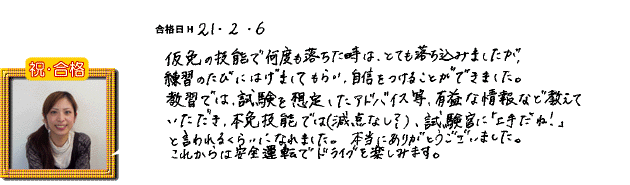 合格日 H 21・2・6
祝・合格
仮免の技能で何度も落ちた時は、とても落ち込みましたが、
練習のたびにはげましてもらい、自信をつけることができました。
教習では、試験を想定したアドバイス等、有益な情報など教えて
いただき、本免技能では(減点なし?)、試験官に「上手だね!」
と言われるくらいになれました。本当にありがとうございました。
これからは安全運転でドライブを楽しみます。